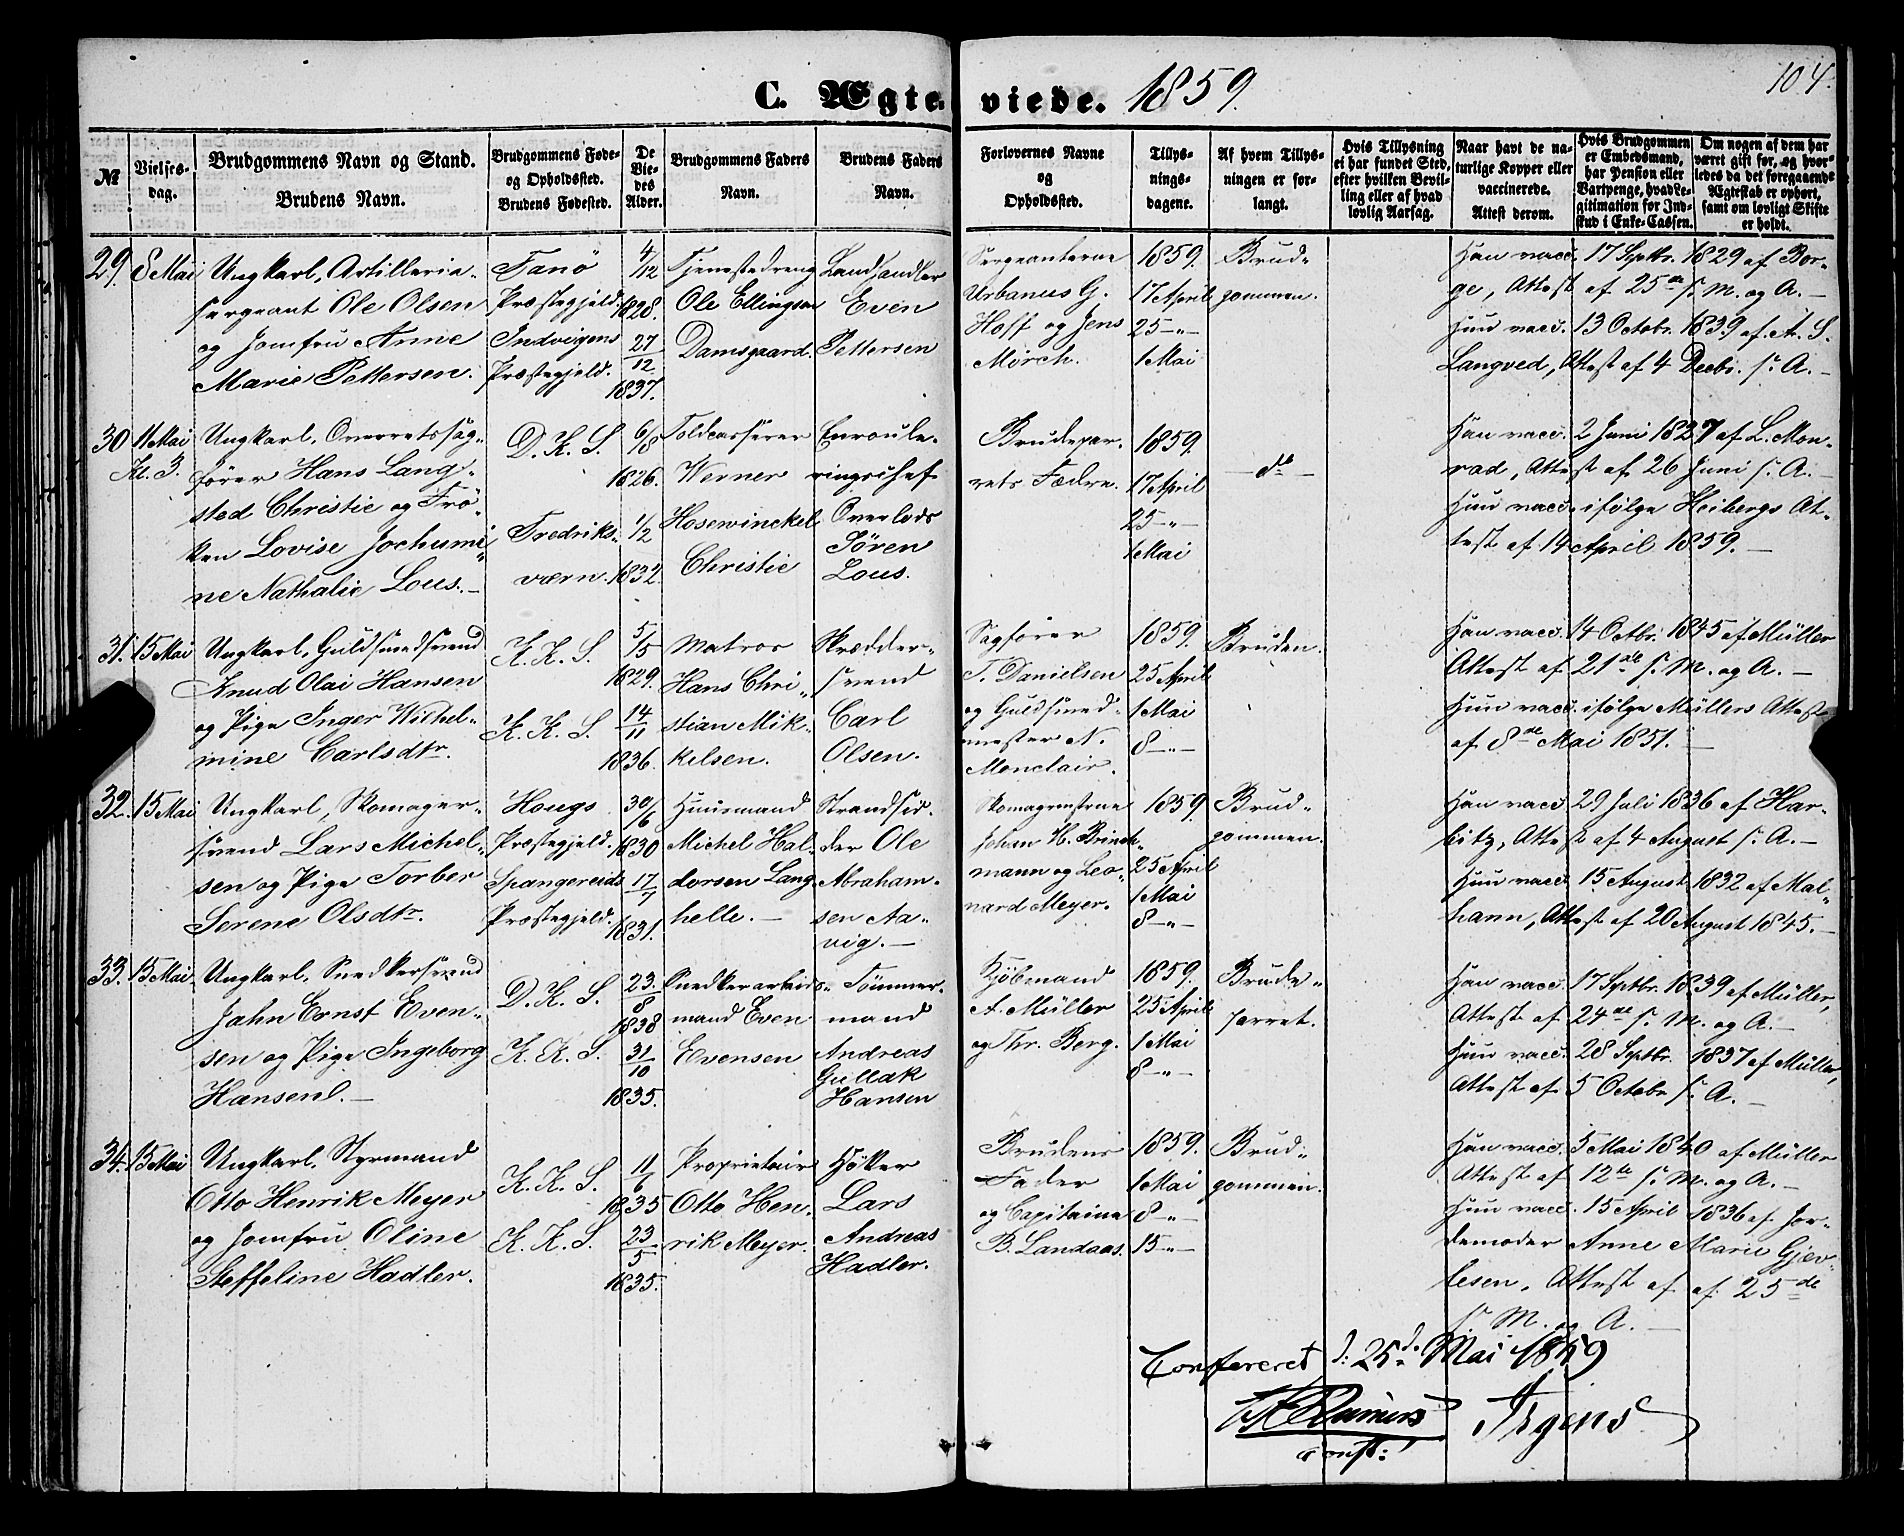 C. Ægteviede. 1859.
104.
№
Vielses-
dag.
Brudgommens Navn og Stand.
Brudens Navn.
Brudgommens Føde-
og Opholdssted.
Brudens Fødested.
De
Vie-
des
Alder.
Brudgommens Faders
Navn.
Brudens Faders
Navn.
Forlovernes Navne
og
Opholdssted.
Tillys-
nings-
dagene.
Af hvem Tillys-
ningen er for-
langt.
Hvis Tillysning
ei har fundet Sted,
efter hvilken Bevil-
ling eller af hvad
lovlig Aarsag.
Naar havt de na-
turlige Kopper eller
vaccinerede.
Attest derom.
Hvis Brudgommen
er Embedsmand,
har Pension eller
Vartpenge, hvad Le-
gitimation for Ind-
skud i Enke-Cassen.
Om nogen af dem har
været gift før, og hvor-
ledes da det foregaaende
Ægteskab er ophørt,
samt om lovligt Skifte
er holdt.
29. 8 Mai
Ungkarl, Artilleria-
sergeant Ole Olsen
og Jomfru Anne
Marie Pettersen.
Fanö
Præstegjeld.
Indvigens
Præstegjeld.
4/12
1828.
27/12
1837.
Tjenestedreng
Ole Ellingsen
Damsgaard.
Landhandler
Even
Pettersen
Sergeanterne
Urbanus G.
Hoff og Jens
Mörch.
1859.
17 April
25 -"-
1 Mai
Brud-
gommen.
Han vacc. 17 Septbr. 1829 af Bor-
ge, Attest af 25de s. M. og A. —
Hun vacc. 13 Octobr. 1839 af A. S.
Langved, Attest af 4 Decbr. s. A. —
30 11 Mai
Kl. 3.
Ungkarl, Overretssag-
förer Hans Lang-
sted Christie og Frö-
ken Lovise Jochumi-
ne Nathalie Lous. —
D. K. S.
Fredriks-
værn.
6/18
1826.
1/2
1832.
Toldcasserer
Werner
Hosewinckel
Christie
Enroule-
ringschef
Overlods
Sören
Lous.
Brudepar-
rets Fædre.
1859.
17 April
25 -"-
1 Mai
— do —
Han vacc. 2 Juni 1827 af L. Mon-
rad, Attest af 26 Juni s. A. —
Hun vacc. ifölge Heibergs At-
test af 14 April 1859. —
31. 15 Mai
Ungkarl, Guldsmedsvend
Knud Olai Hansen
og Pige Inger Wilhel-
mine Carlsdtr.
K. K. S.
K. K. S.
5/5
1829.
14/11
1836.
Matros
Hans Chri-
stian Mik-
kelsen.
Skrædder-
svend
Carl
Olsen.
Sagförer
T. Danielsen
og Guldsmed-
mester N.
Monclair.
1859.
25 April
1 Mai
8 -"-
Bruden.
Han vacc. 14 Octbr. 1845 af Müller
Attest af 21de s. M. og A. —
Hun vacc. ifölge Müllers Attest
af 8de Mai 1851. —
32. 15 Mai
Ungkarl, Skomager-
svend Lars Michel-
sen og Pige Torber
Serene Olsdtr.
Hougs
Præstegjeld.
Spangereids
Præstegjeld.
30/6
1830
17/7
1831.
Huusmand
Michel Hal-
dorsen Lang-
helle. —
Strandsid-
der Ole
Abraham-
sen Aa-
vig. —
Skomagrmstrne
Johan H. Brinck-
mann og Leo-
nard Meyer.
1859.
25 April
1 Mai
8 -"-
Brud-
gommen.
Han vacc. 29 Juli 1836 af Har-
bitz, Attest af 4 August s. A. —
Hun vacc. 15 August 1832 af Mal-
hann, Attest af 20 August 1845. —
33. 15 Mai
Ungkarl, Snedkersvend
Jahn Ernst Even-
sen og Pige Ingeborg
Hansen. —
D. K. S.
K. K. S.
23/8
1838
31/10
1835.
Snedkerarbeids-
mand Even
Evensen
Tömmer-
mand
Andreas
Gullak
Hansen
Kjöbmand
A. Müller
og Thr. Berg.
1859.
25 April
1 Mai
8 -"-
Brude-
parret.
Han vacc. 17 Septbr. 1839 af Müller,
Attest af 24de s. M. og A. —
Hun vacc. 28 Septbr. 1837 af Müller,
Attest af 5 Octobr. s. A. —
34. 15 Mai
Ungkarl, Styrmand
Otto Henrik Meyer
og Jomfru Oline
Steffeline Hadler.
K. K. S.
K. K. S.
11/6
1835
23/5
1835.
Proprietair
Otto Hen-
rik Meyer.
Höker
Lars
Andreas
Hadler.
Brudens
Fader
og Capitaine
B. Landaas.
1859.
1 Mai
8 -"-
15 -"-
Brud-
gommen.
Han vacc. 5 Mai 1840 af Müller
Attest af 12te s. M. og A. —
Hun vacc. 15 April 1836 af Jor-
demoder Anne Marie Gjev-
lesen, Attest af af 25de
s. M. og A. —
Confereret d: 25d. Mai 1859
Irgens
const: